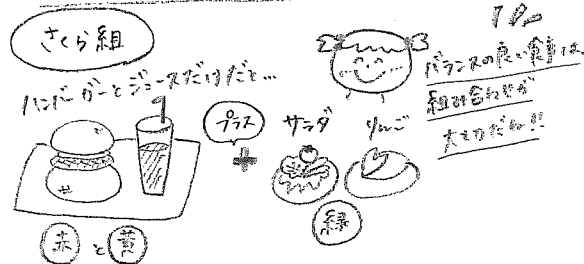 さくら組
ハンバーガーとジュースだけだと…
プラス
+
サラダ
りんご
バランスの良い食事は、
組み合わせが
大切だね!!
赤と黄
緑